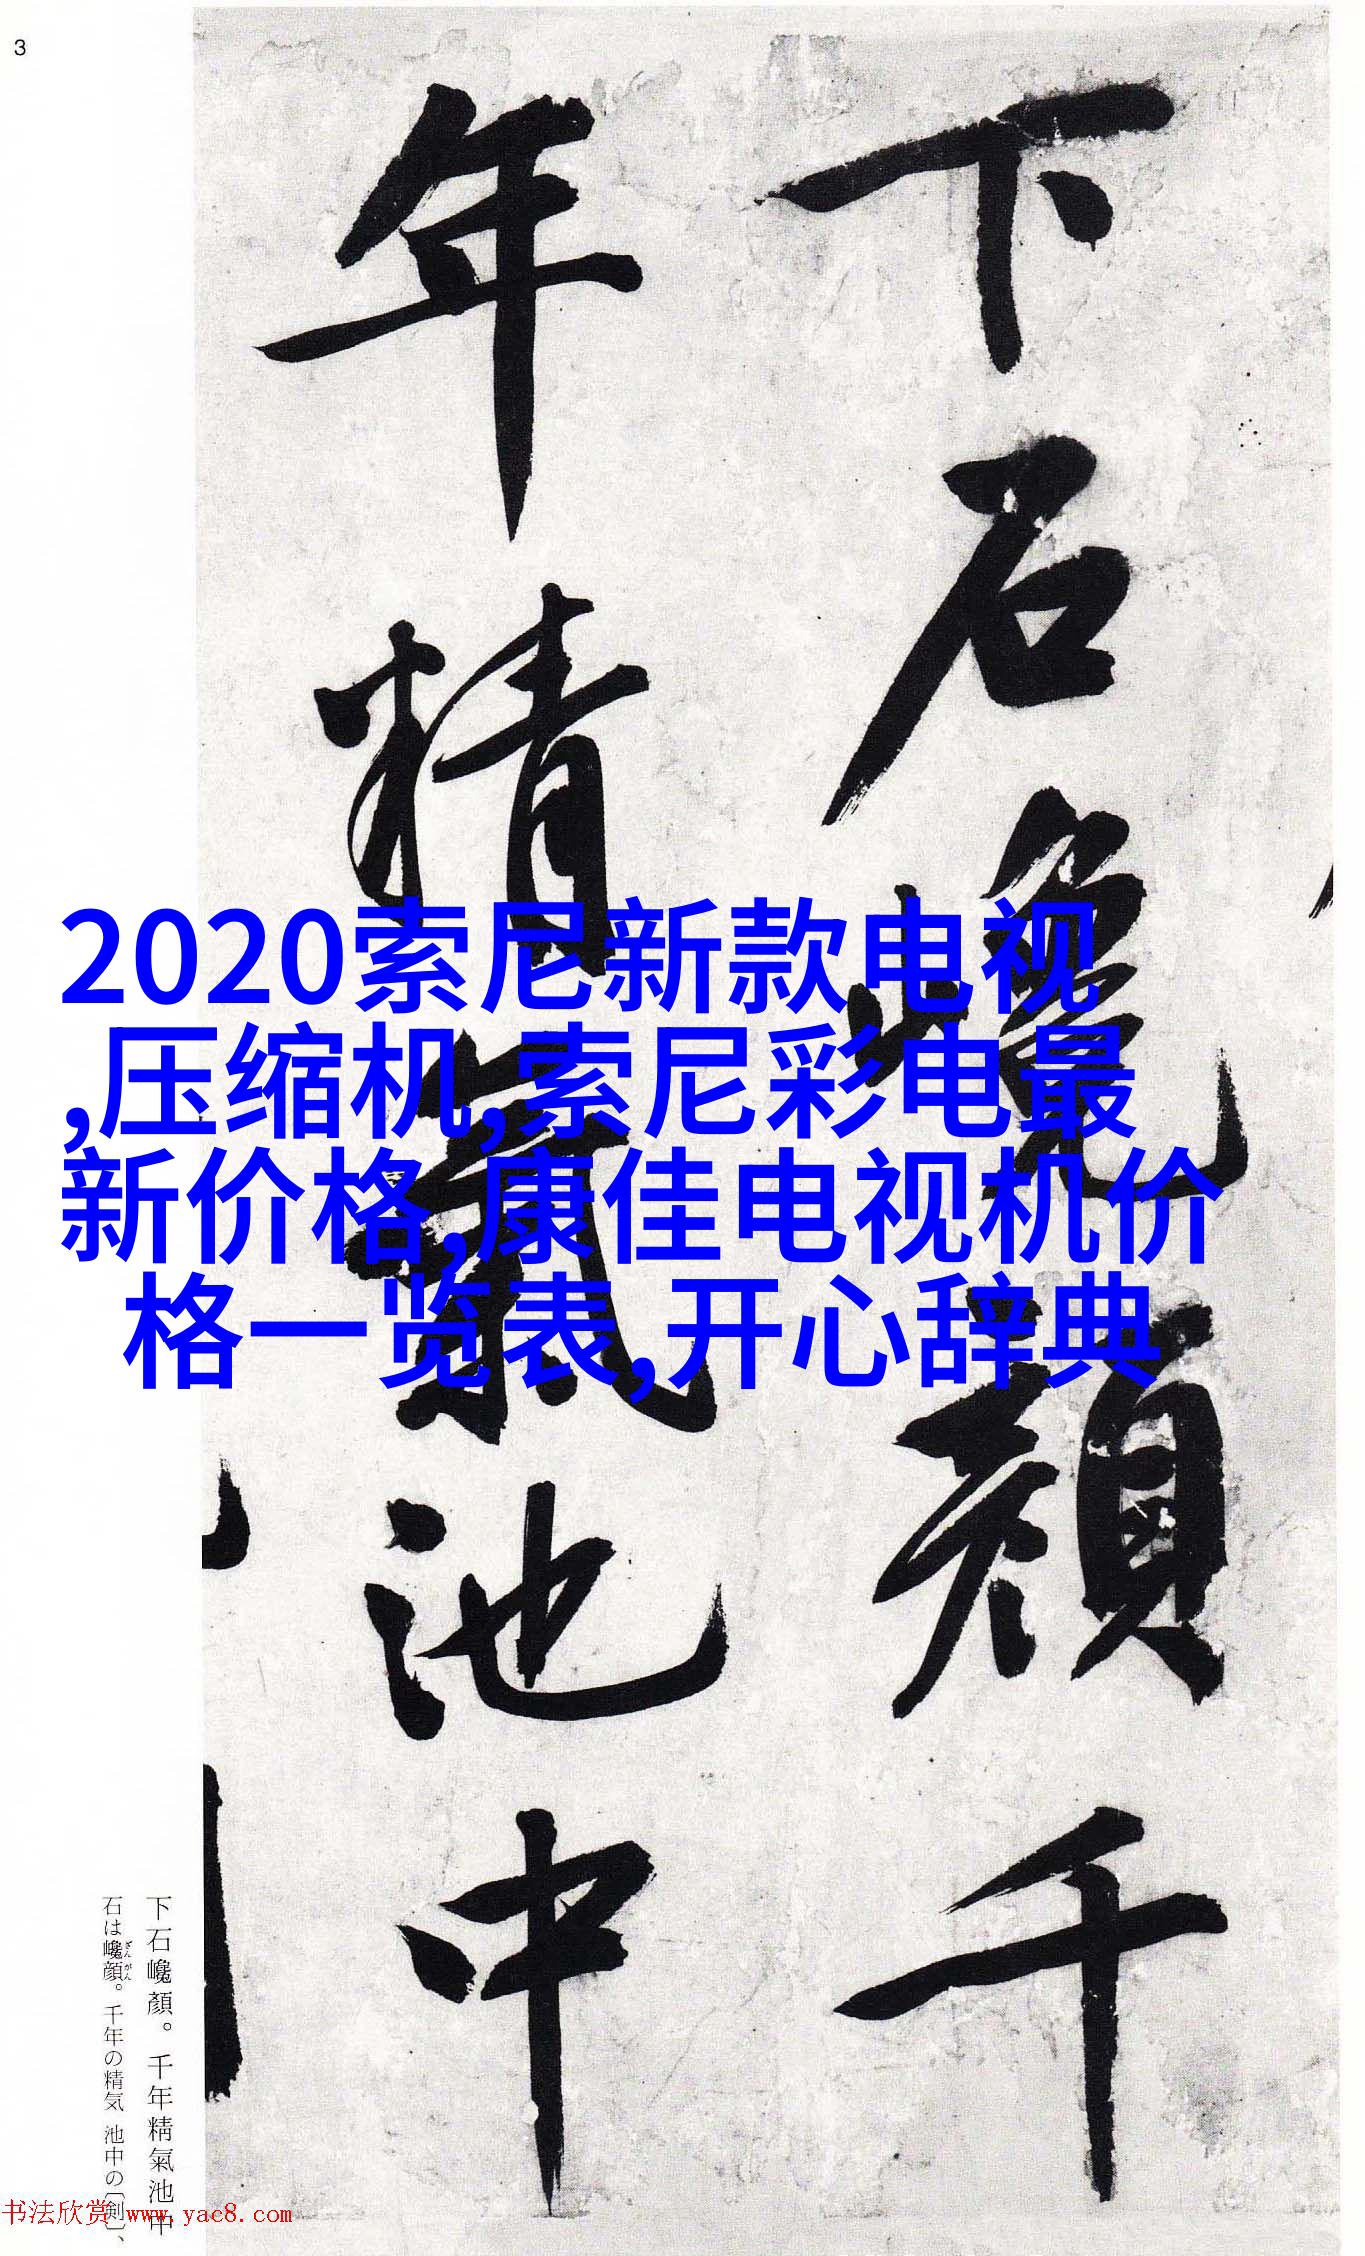 3
下石巉顔千
年精氣池中
2020索尼新款电视
,压缩机,索尼彩电最
新价格,康佳电视机价
格一览表,开心辞典
下石巉顏。千年精氣池中
石は巉顔。千年の精気 池中の〔剣〕、
ざんがん
书法欣赏 www.yac8.com